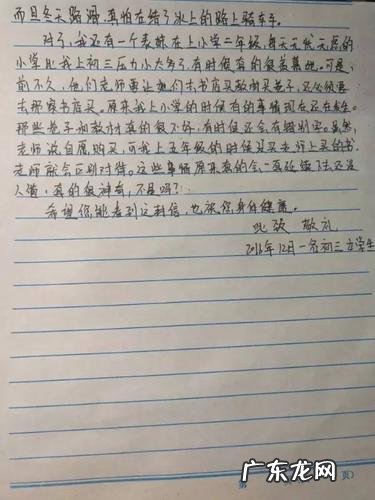 而且冬天路滑,真怕在结了冰上的路上骑车车。
对了,我还有一个表妹在上小学二年级,每天无忧无虑的
小学比我上初三压力小太多了,有时候真的很羡慕她。可是,
前不久,他们老师要让他们去书店买教材买卷子,还必须要
去那家书店买。原来我上小学的时候有的事情现在还在发生。
那些卷子和教材真的很不好,有时候还会有错别字。虽然,
老师说自愿购买,可我上五年级的时候没买老师上买的书,
老师就会区别对待。这些事情原来真的会一直延续下去还没
人懂,真的很神奇,不是吗?
希望您能看到这封信,也祝您身体健康。
此致 敬礼
2016年12月一名初三女学生
第 页
广东龙网